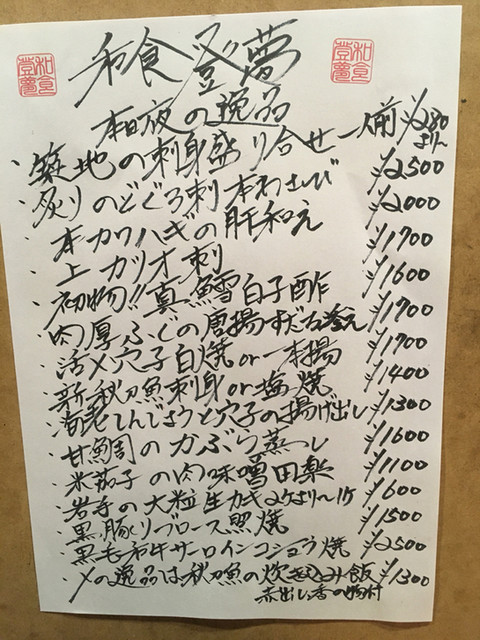 和食登夢
和食登夢
和食 登夢
本日夜の逸品
・築地の刺身盛り合せ一人前 ¥2280より〜
・炙りのどぐろ刺 本わさび ¥2500
・本カワハギの肝和え ¥2000
・上カツオ刺 ¥1700
・初物!!真鱈白子酢 ¥1600
・肉厚ふぐの唐揚すだち添え ¥1700
・活〆穴子白焼or一本揚 ¥1700
・新秋刀魚刺身or塩焼 ¥1400
・海老しんじょうと穴子の揚げ出し ¥1300
・甘鯛のかぶら蒸し ¥1600
・米茄子の肉味噌田楽 ¥1100
・岩手の大粒生カキ ¥600
・黒豚リブロース照焼 ¥1500
・黒毛和牛サーロインコショウ焼 ¥2500
・〆の逸品は秋刀魚の炊き込み飯 ¥1300
赤出し香の物付